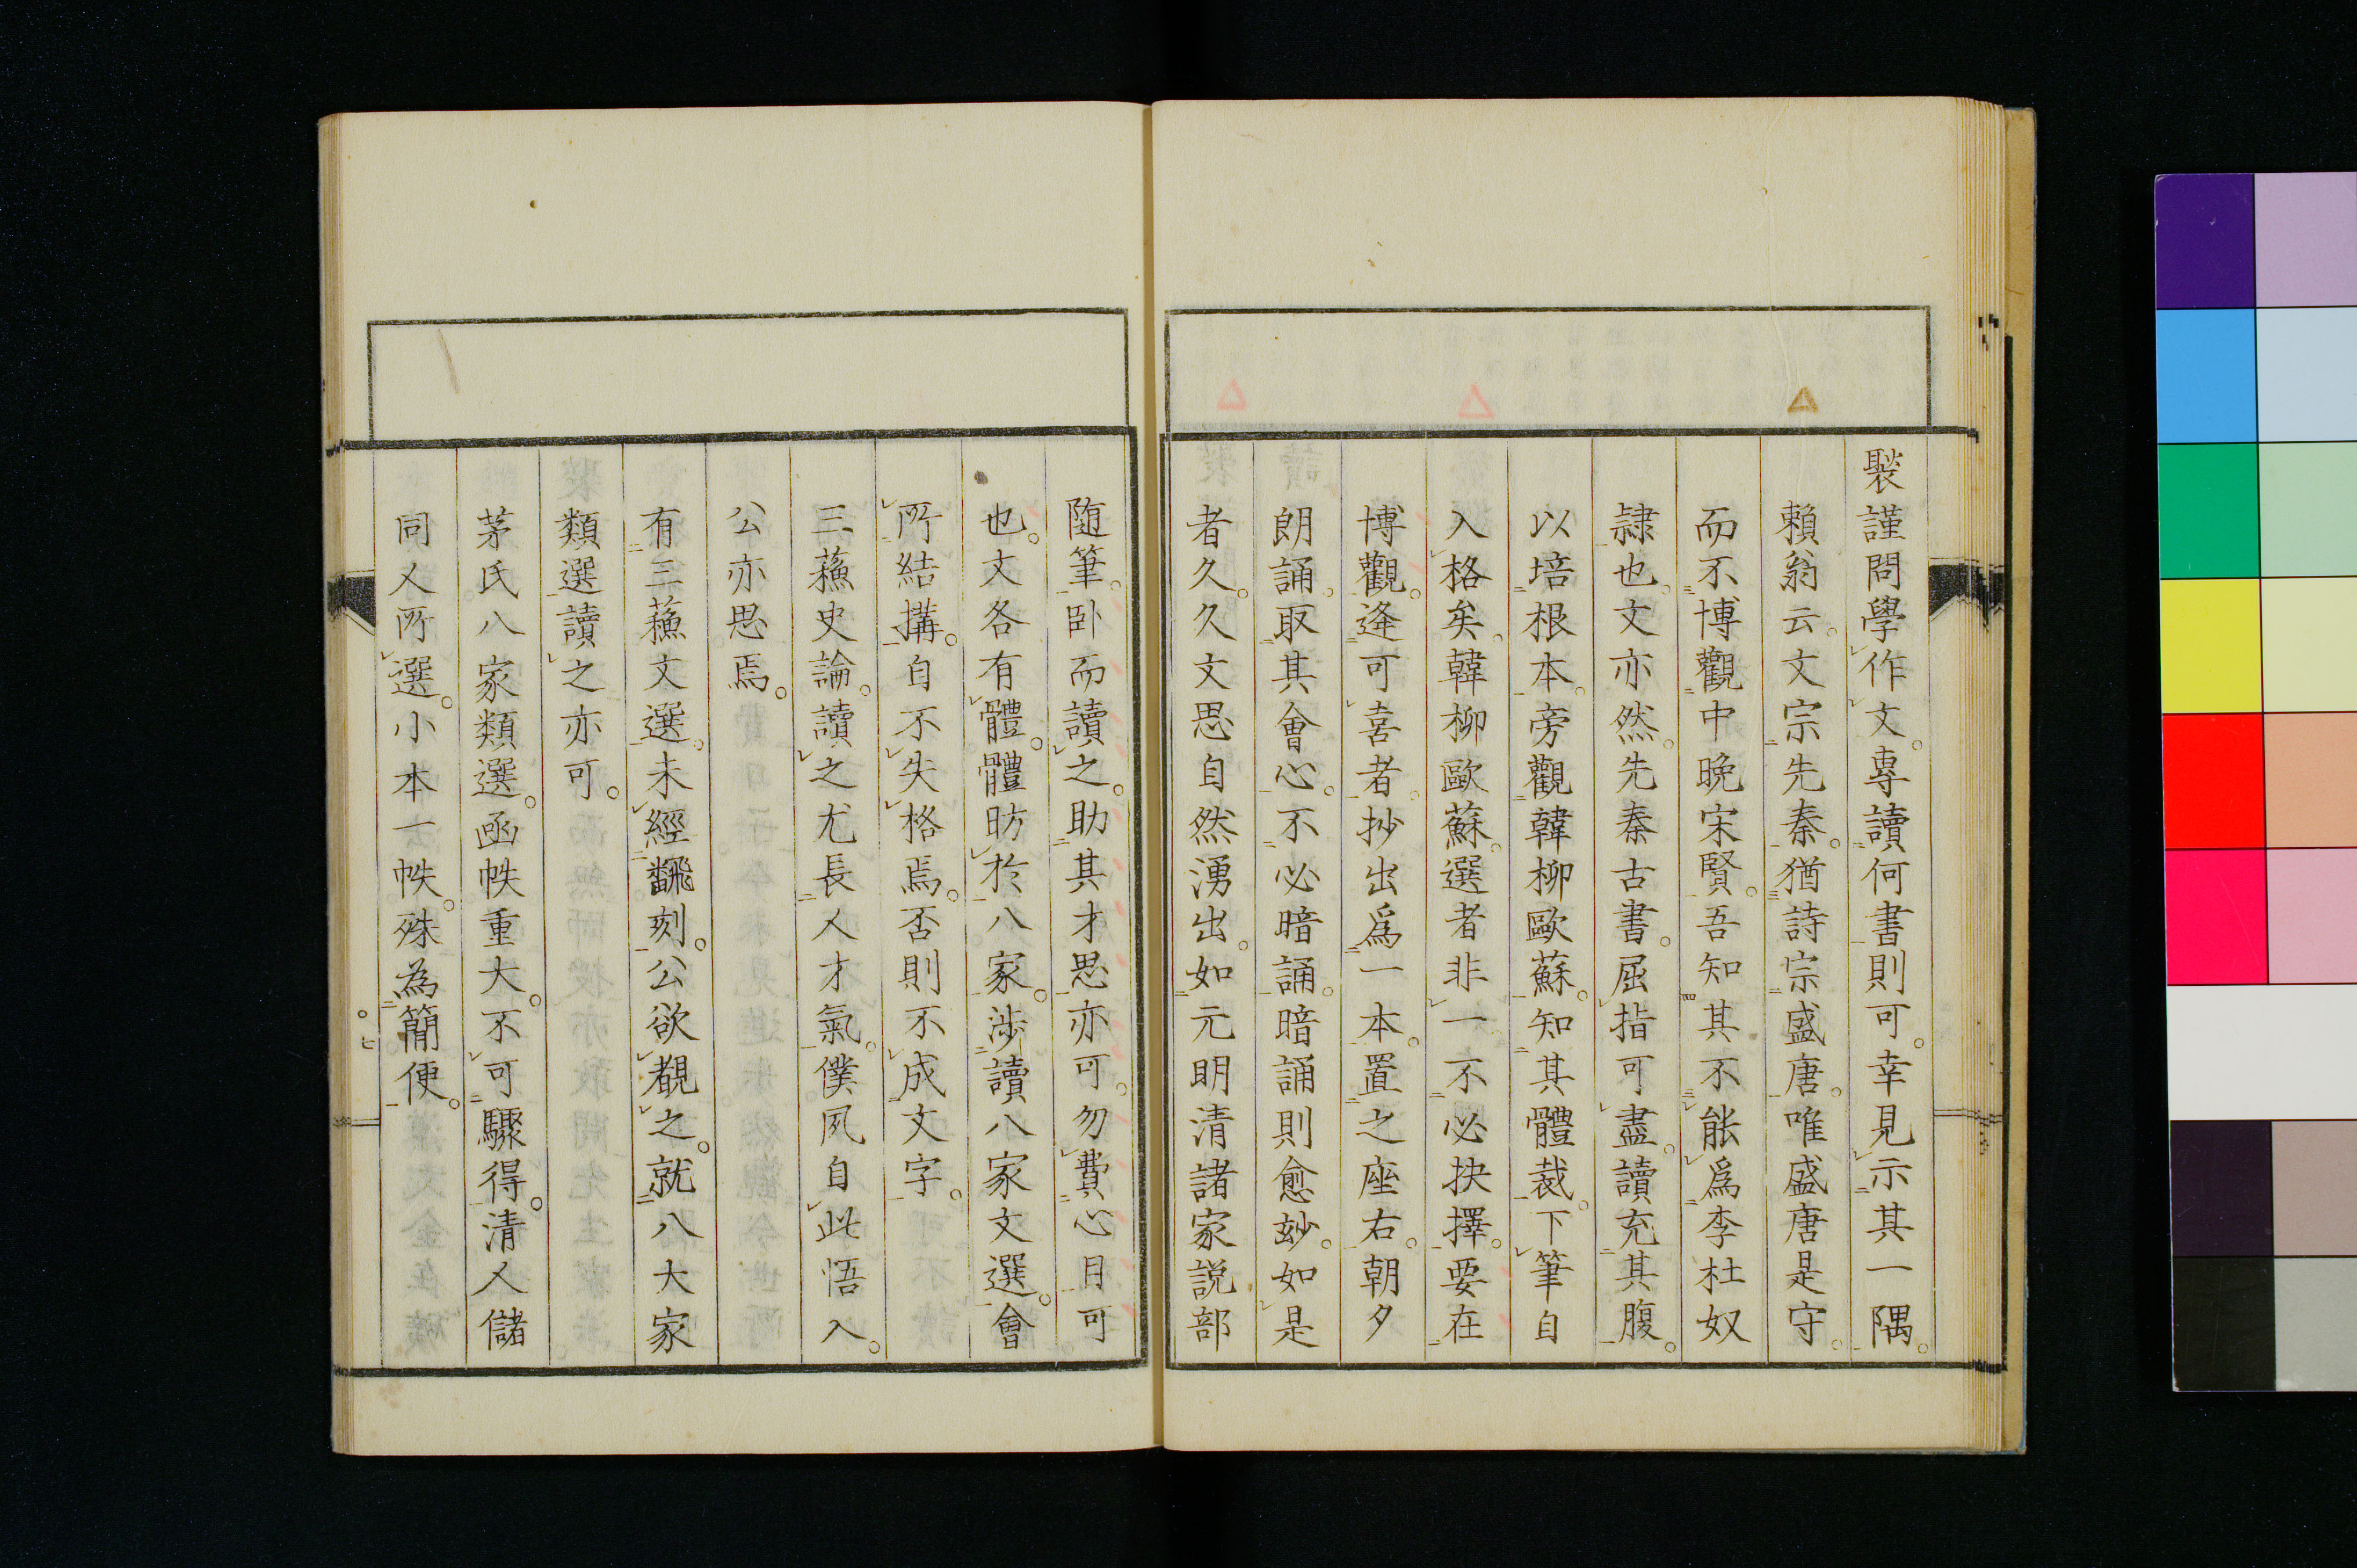 褧謹問學作文。專讀何書則可。幸見示其一隅。
賴翁云。文宗先秦。猶詩宗盛唐。唯盛唐是守。
而不博觀中晚宋賢。吾知其不能爲李杜奴
隷也。文亦然。先秦古書。屈指可盡。讀充其腹。
以培根本。旁觀韓柳歐蘇。知其體裁。下筆自
入格矣。韓柳歐蘇。選者非一。不必抉擇。要在
博觀。逢可喜者。抄出爲一本。置之座右。朝夕
朗誦。取其會心。不必暗誦。暗誦則愈玅。如是
者久。久文思自然湧出。如元明清諸家説部
随筆。卧而讀之。助其才思亦可。勿費心目可
也。文各有體。體昉於八家。涉讀八家文選。會
所結搆。自不失格焉。否則不成文字。
三蘓史論。讀之尤長人才氣。僕夙自此悟入。
公亦思焉。
有三蘓文選。未經飜刻。公欲覩之。就八大家
類選讀之亦可。
茅氏八家類選。函帙重大。不可驟得。清人儲
同人所選。小本一帙。殊為簡便。
七